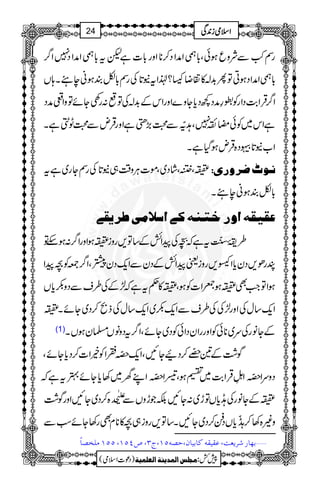 اسلامی زندگی
24
رسم کب سے شروع ہوئی، باہمی امداد کرنا اور بات ہے لیکن یہ باہمی امداد نہیں اگر
باہمی امداد ہوتی تو پھر بدلہ کا تقاضا کیسا؟ لہٰذا یہ نیوتا کی رسم بالکل بند ہونی چاہئے۔ ہاں
اگر قرابت دار کو بطور مدد کچھ دیا جاوے اور اس کے بدلے کی توقع نہ رکھی جائے تو واقعی مدد
ہے اس میں کوئی مضائقہ نہیں، ہدیہ سے محبت بڑھتی ہے اور قرض سے محبت ٹوٹتی ہے۔
اب نیوتا بیہودہ قرض ہو گیا ہے۔
نوٹ ضروری: عقیقہ، ختنہ، شادی، موت ہر وقت ہی نیوتا کی رسم جاری ہے یہ
بالکل بند ہونی چاہئے۔
عقیقہ اور ختنہ کے اسلامی طریقے
طریقۂ سنت یہ ہے کہ بچے کی پیدائش کے ساتویں روز عقیقہ ہو اور اگر نہ ہو سکے تو
پندرھویں دن یا اکیسویں روز یعنی پیدائش کے دن سے ایک دن پیشتر، اگر جمعہ کو بچہ پیدا
ہوا تو جب بھی عقیقہ ہو جمعرات کو ہو، عقیقہ کا حکم یہ ہے کہ لڑکے کی طرف سے دو بکریاں
ایک سال کی اور لڑکی کی طرف سے ایک بکری ایک سال کی ذبح کر دی جائے۔ عقیقہ
کے جانور کی سری نائی کو اور ران دائی کو دی جائے، اگر یہ دونوں مسلمان ہوں۔ (۲)
گوشت کے تین حصے کر دیئے جائیں، ایک حصّہ فقرا کو خیرات کر دیا جائے،
دوسرا حصّہ اہلِ قرابت میں تقسیم ہو، تیسرا حصّہ اپنے گھر میں کھایا جائے بہتر یہ ہے کہ
عقیقہ کے جانور کی ہڈیاں توڑی نہ جائیں بلکہ جوڑوں سے علیحدہ کر دی جائیں اور گوشت
وغیرہ کھا کر ہڈیاں دفن کر دی جائیں۔ ساتویں روز ہی بچے کا نام بھی رکھا جائے سب سے
بهار شریعت، عقیقه کابیان، حصه ١٥، ج ٣، ص ١٥٤، ١٥٥ ملخصاً
پیش کش: مجلس المدينة العلمية (دعوتِ اسلامی)